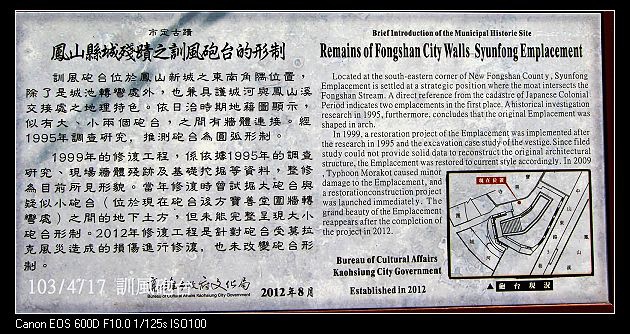 市定古蹟
鳳山縣城殘蹟之訓風砲台的形制
訓風砲台位於鳳山新城之東南角隅位置，
除了是城池轉彎處外，也兼具護城河與鳳山溪
交接處之地理特色。依日治時期地籍圖顯示，
似有大、小兩個砲台，之間有牆體連接。經
1995年調查研究，推測砲台為圓弧形制。
1999年的修復工程，係依據1995年的調查
研究、現場牆體殘跡及基礎挖掘等資料，整修
為目前所見形貌。當年修復時曾試掘大砲台與
疑似小砲台（位於現在砲台後方寶善堂圍牆轉
彎處）之間的地下土方，但未能完整呈現大小
砲台形制。2012年修復工程是針對砲台受莫拉
克風災造成的損傷進行修復，也未改變砲台形
制。
高雄市政府文化局
Bureau of Cultural Affairs Kaohsiung City Government
2012年8月
Brief Introduction of the Municipal Historic Site
Remains of Fongshan City Walls Syunfong Emplacement
Located at the south-eastern corner of New Fongshan County, Syunfong
Emplacement is settled at a strategic position where the moat intersects the
Fongshan Stream. A direct reference from the cadastre of Japanese Colonial
Period indicates two emplacements in the first place. A historical investigation
research in 1995, furthermore, concludes that the original Emplacement was
shaped in arch.
In 1999, a restoration project of the Emplacement was implemented after
the research in 1995 and the excavation case study of the vestige. Since filed
study could not provide solid data to reconstruct the original architectural
structure, the Emplacement was restored to current style accordingly. In 2009
, Typhoon Morakot caused minor
damage to the Emplacement, and
a restoration construction project
was launched immediately. The
grand beauty of the Emplacement
reappears after the completion of
the project in 2012.
Bureau of Cultural Affairs
Kaohsiung City Government
Established in 2012
現在位置
▲砲台現況
103/4717 訓風砲台
Canon EOS 600D F10.0 1/125s ISO100